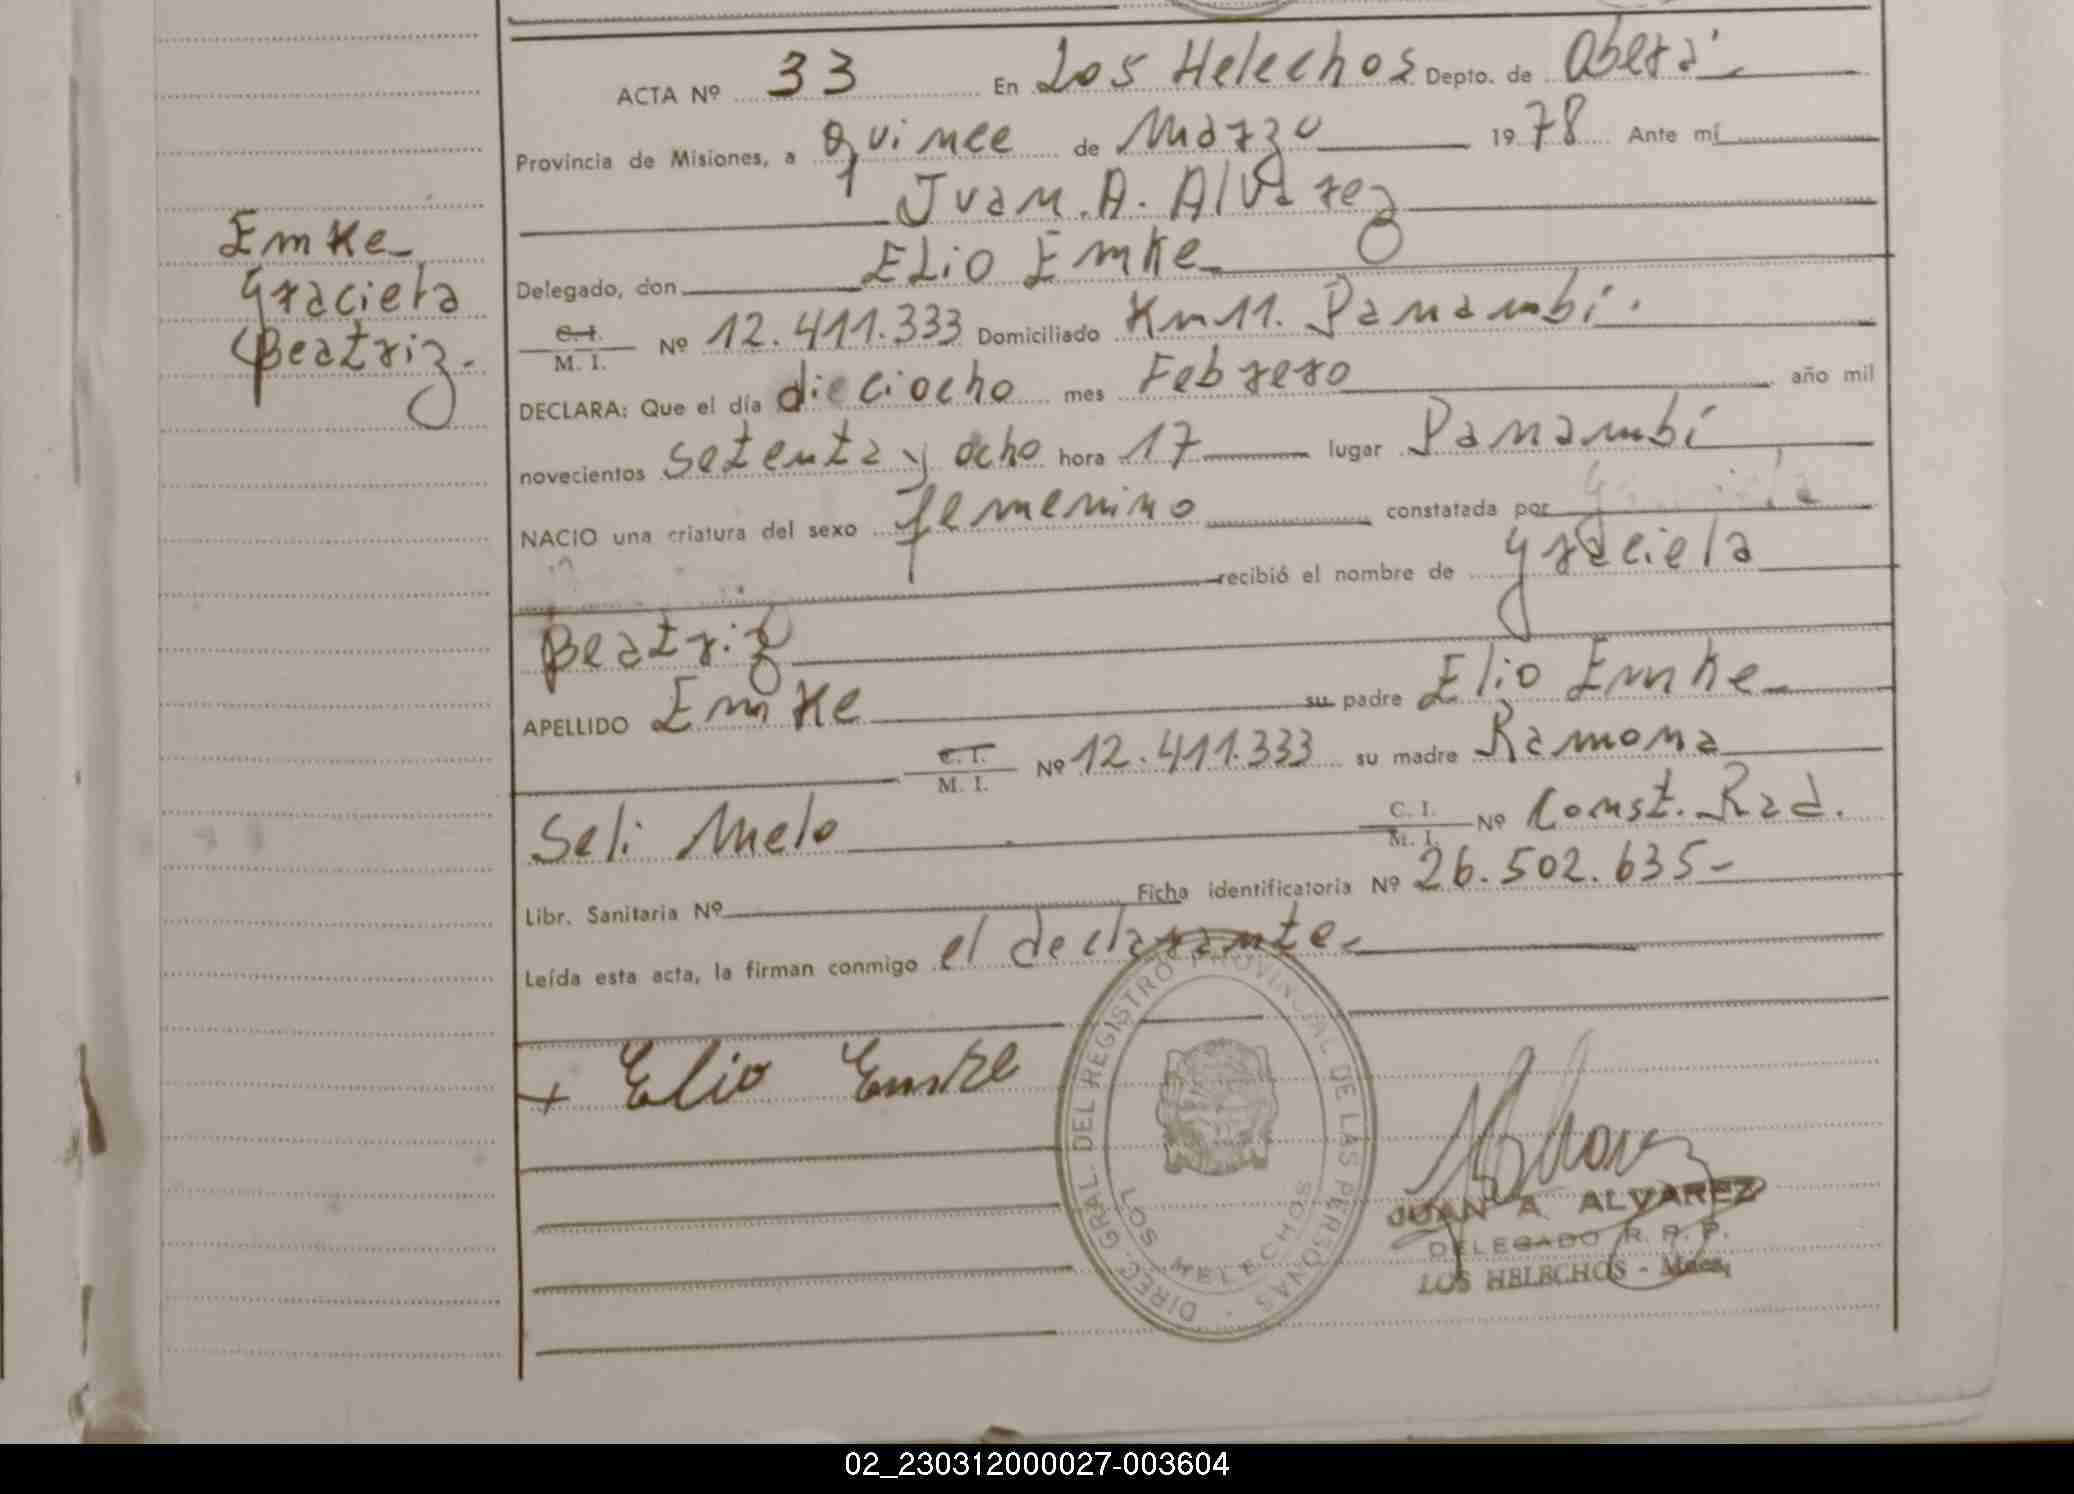 ACTA Nº 33 En Los Helechos Depto. de Oberá
Provincia de Misiones, a quince de Marzo 1978 Ante mí
Juan. A. Alvarez
Emke
Graciela
Beatriz.
Delegado, don Elio Emke
C.I. / M. I. Nº 12.411.333 Domiciliado Km 11. Panambí.
DECLARA: Que el día dieciocho mes Febrero año mil
novecientos setenta y ocho hora 17 lugar Panambí
NACIO una criatura del sexo femenino constatada por
recibió el nombre de Graciela
Beatriz
APELLIDO Emke su padre Elio Emke
C. I. / M. I. Nº 12.411.333 su madre Ramona
Seli Melo C. I. / M. I. Nº Const. Rad.
Libr. Sanitaria Nº Ficha identificatoria Nº 26.502.635-
Leída esta acta, la firman conmigo el declarante
+ Elio Emke
DIREC. GRAL. DEL REGISTRO PROVINCIAL DE LAS PERSONAS
LOS HELECHOS
JUAN A. ALVAREZ
DELEGADO R. R. P.
LOS HELECHOS - Mnes,
02_230312000027-003604